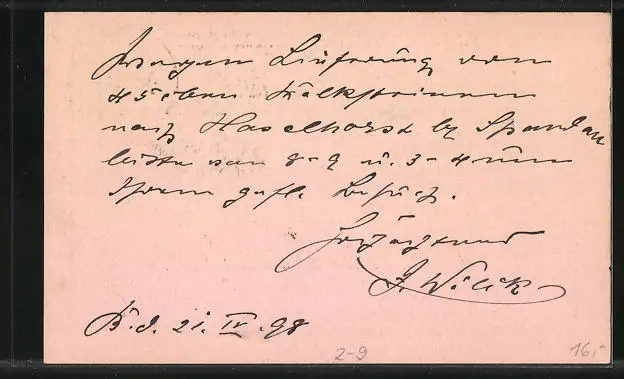 Wegen Lieferung von
45 cbm Kalksteinen
nach Haselhorst b/ Spandau
bitte von 8-9 u. 3-4 um
Ihren gefl. Besuch.
Hochachtend
J. Wilck
B. d. 21. IV. 98
2-9
16i